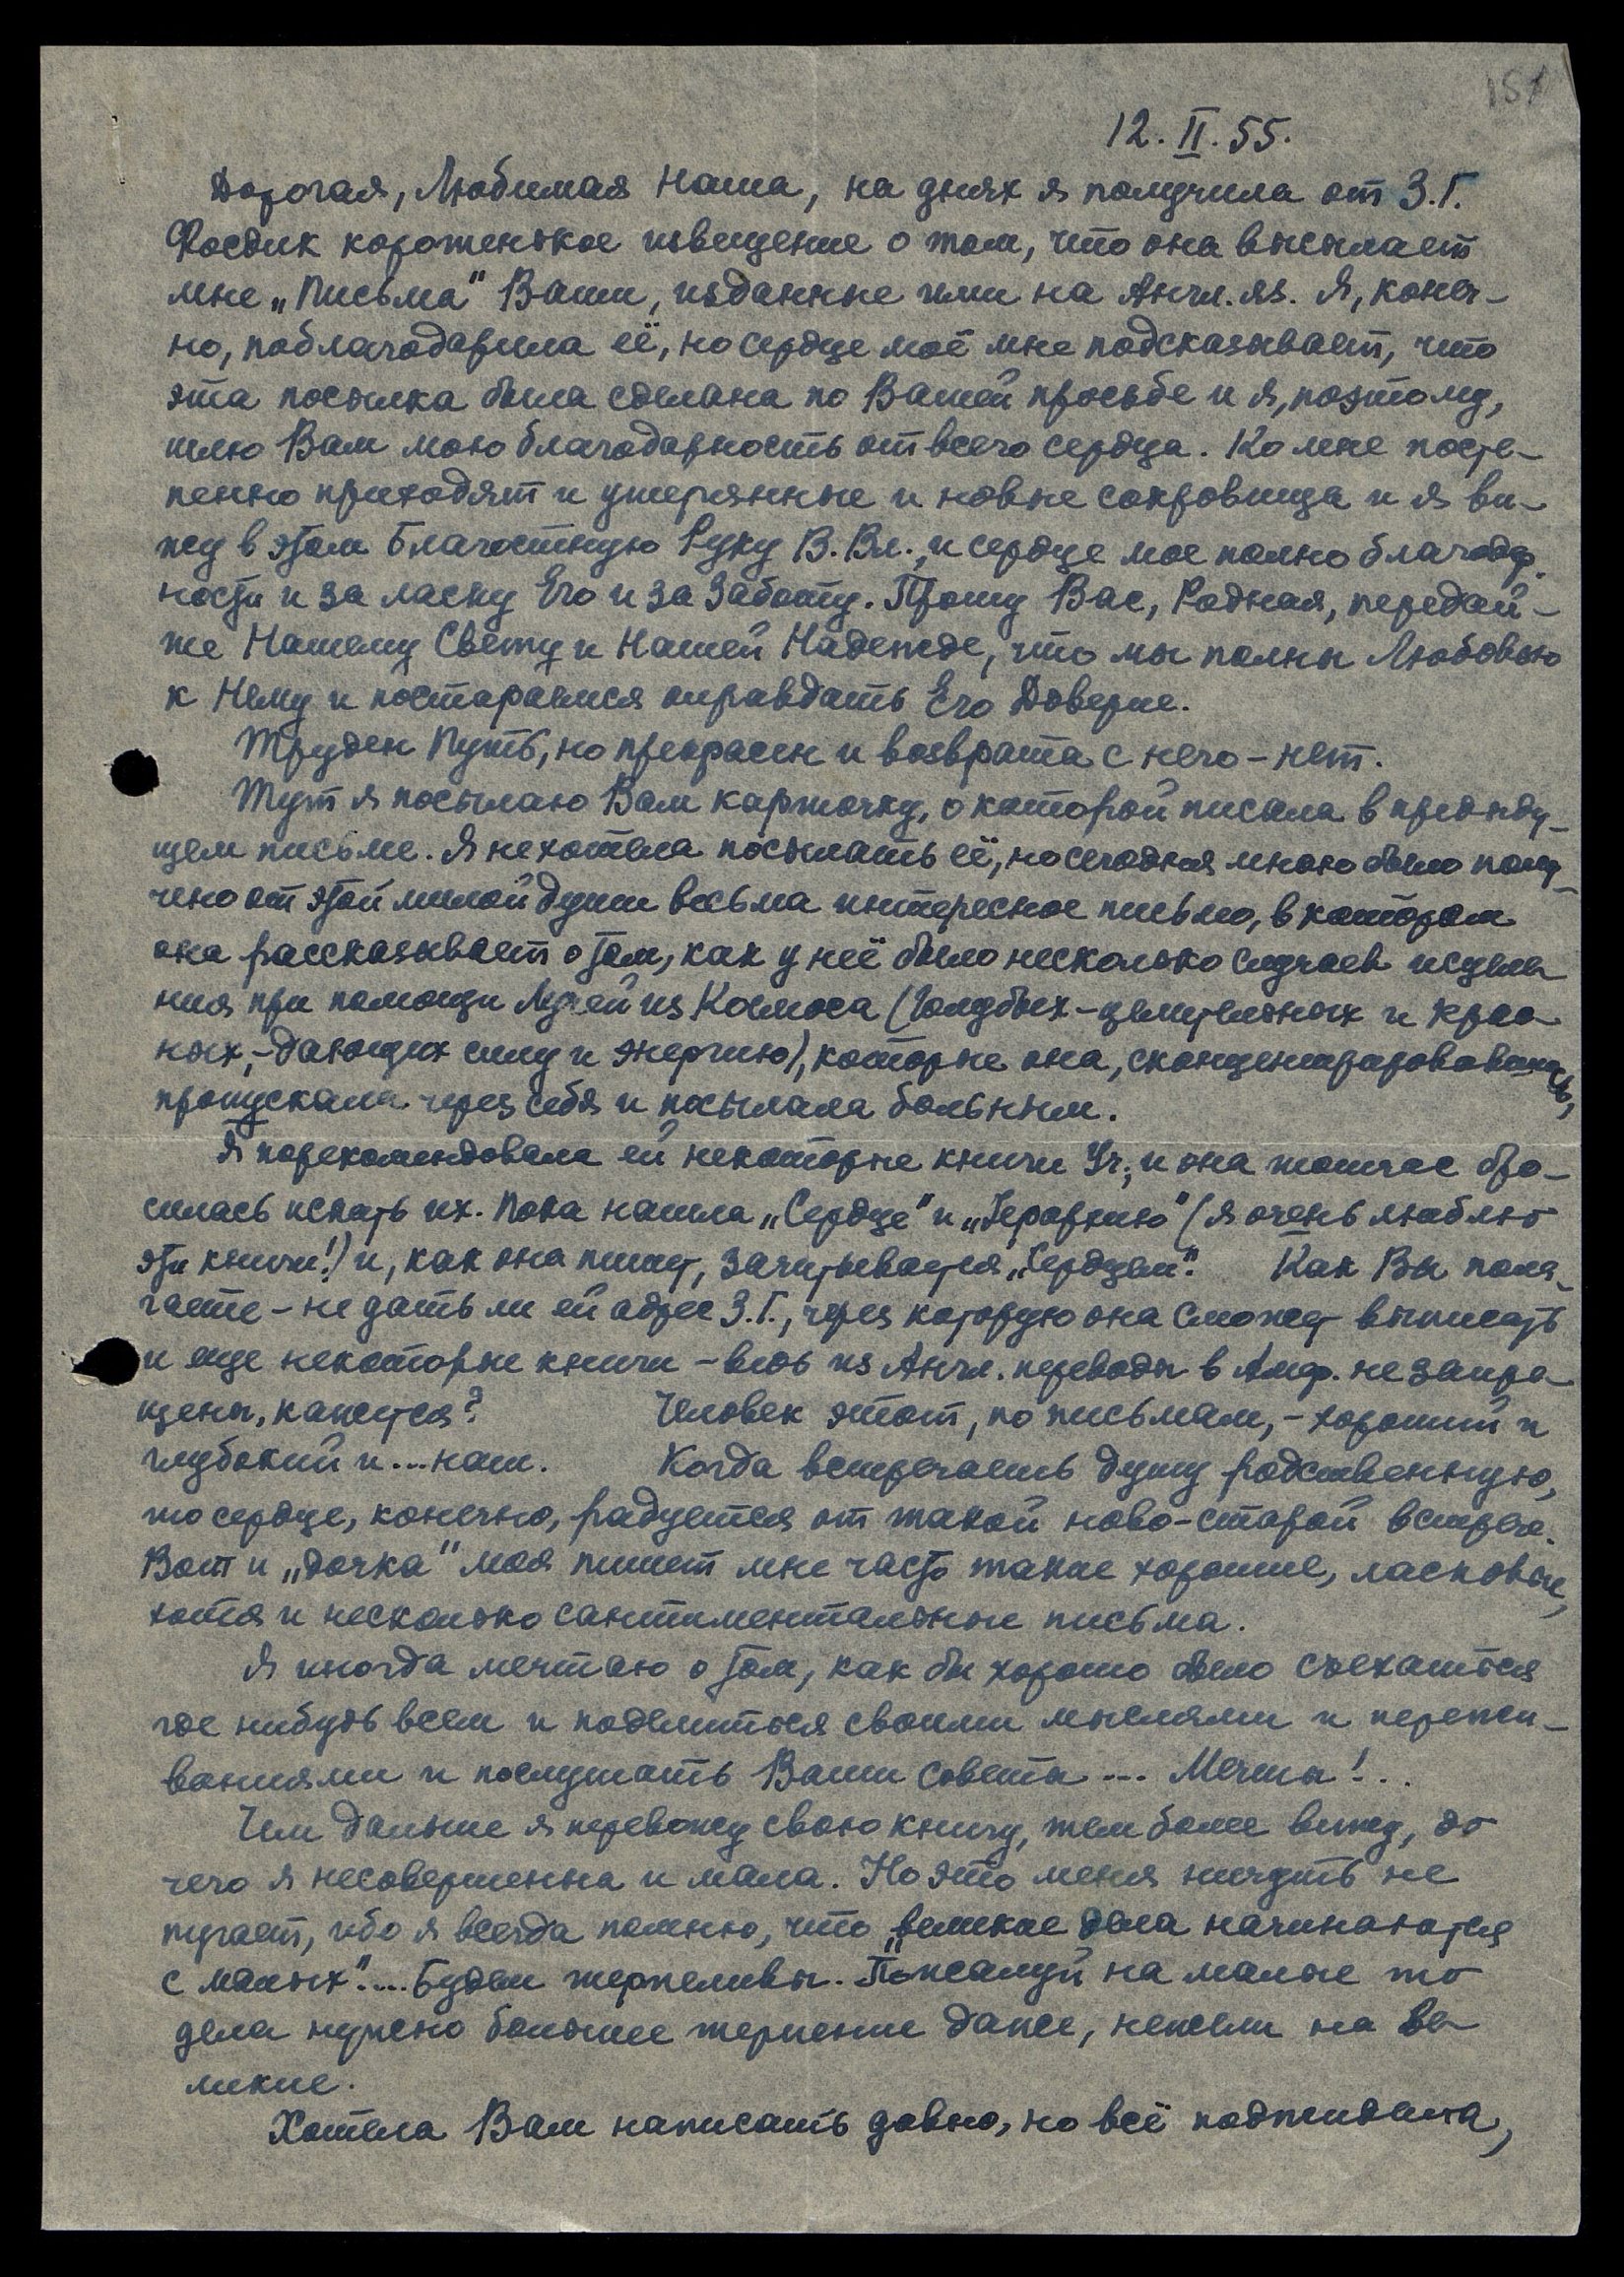 151
12.II.55.
Дорогая, Любимая Наша, на днях я получила от З.Г.
Фосдик коротенькое извещение о том, что она высылает
мне „Письма" Ваши, изданные ими на Англ. яз. Я, конеч-
но, поблагодарила её, но сердце моё мне подсказывает, что
эта посылка была сделана по Вашей просьбе и я, поэтому,
шлю Вам мою благодарность от всего сердца. Ко мне посте-
пенно приходят и утерянные и новые сокровища и я ви-
жу в этом Благостную Руку В. Вл., и сердце мое полно благодар.
ности и за ласку Его и за Заботу. Прошу Вас, Родная, передай-
те Нашему Свету и Нашей Надежде, что мы полны Любовью
к Нему и постараемся оправдать Его Доверие.
Труден Путь, но прекрасен и возврата с него – нет.
Тут я посылаю Вам карточку, о которой писала в предыду-
щем письме. Я не хотела посылать её, но сегодня мною было полу-
чено от этой милой души весьма интересное письмо, в котором
она рассказывает о том, как у неё было несколько случаев исцеле
ния при помощи Лучей из Космоса (Голубых – целительных и крас
ных, – дающих силу и энергию), которые она, сконцентрировавшись,
пропускала через себя и посылала больным.
Я порекомендовала ей некоторые книги Уч., и она тотчас бро-
силась искать их. Пока нашла „Сердце" и „Иерархию" (я очень люблю
эти книги!) и, как она пишет, зачитывается „Сердцем". Как Вы пола-
гаете – не дать ли ей адрес З.Г., через которую она сможет выписать
и еще некоторые книги – ведь из Англ. переводы в Амер. не запре-
щены, кажется? Человек этот, по письмам, – хороший и
глубокий и... наш. Когда встречаешь душу родственную,
то сердце, конечно, радуется от такой ново-старой встречи.
Вот и „дочка" моя пишет мне часто такие хорошие, ласковые,
хотя и несколько сантиментальные письма.
Я иногда мечтаю о том, как бы хорошо было съехаться
где нибудь всем и поделиться своими мыслями и пережи-
ваниями и послушать Ваши советы ... Мечты!..
Чем дальше я перевожу свою книгу, тем более вижу, до
чего я несовершенна и мала. Но это меня ничуть не
пугает, ибо я всегда помню, что „великие дела начинаются
с малых"... Будем терпеливы. Пожалуй на малые то
дела нужно большее терпение даже, нежели на ве
ликие.
Хотела Вам написать давно, но всё поджидала,